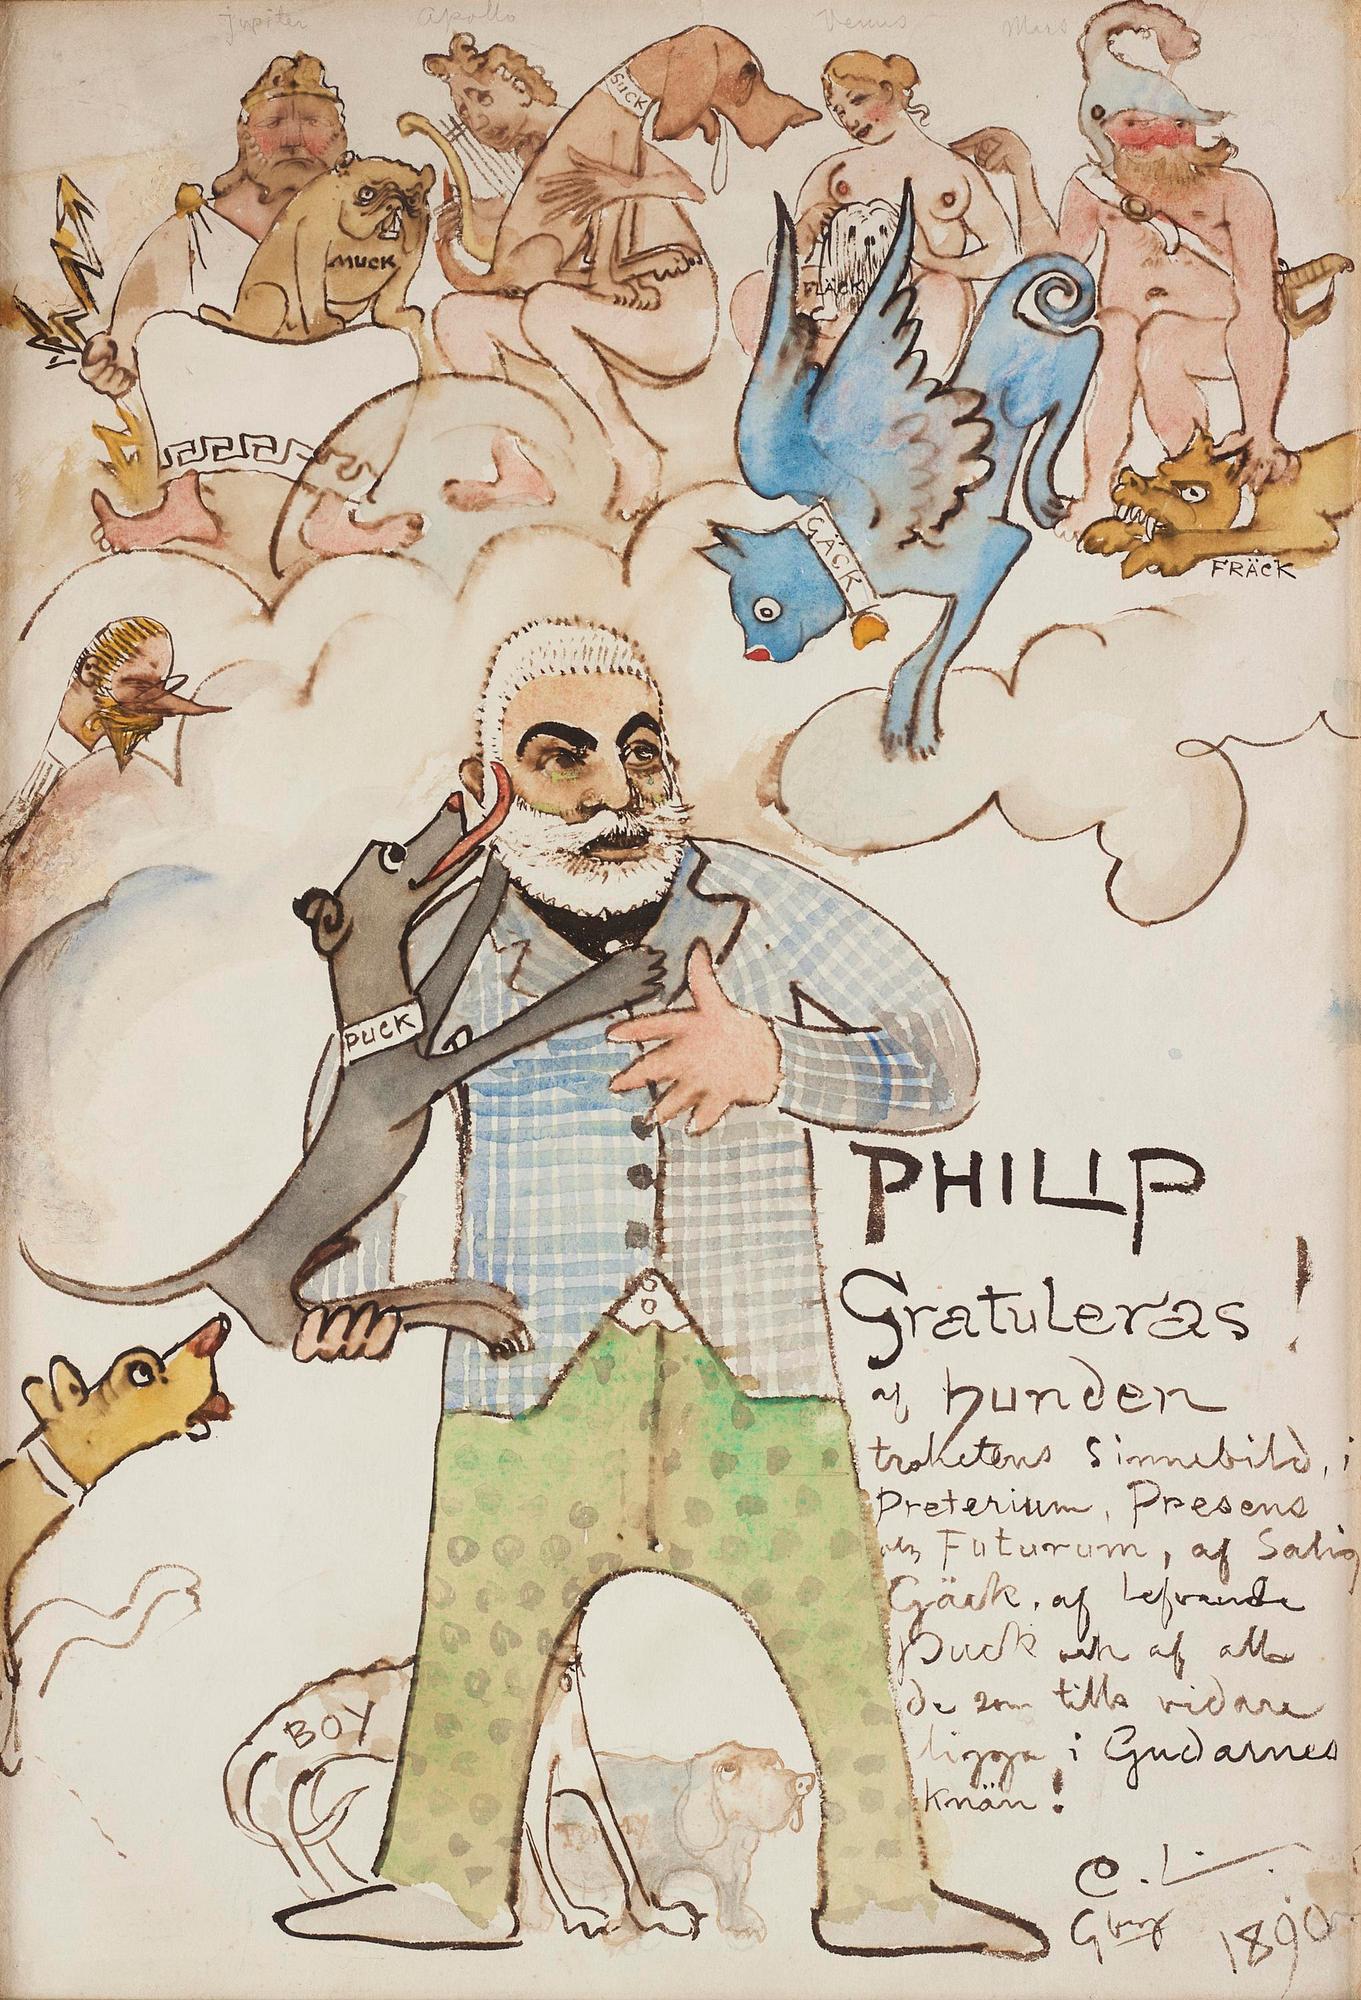 Jupiter Apollo Venus Mars
SUCK
MUCK
FLÄCK
GÄCK
FRÄCK
PUCK
PHILIP
Gratuleras!
af hunden
trohetens Sinnebild, i
Preterium, Presens
och Futurum, af Salig
Gäck, af Lefvande
Puck och af alla
de som tills vidare
ligga i Gudarnes
knän!
BOY
C. L.
Gbrg 1890